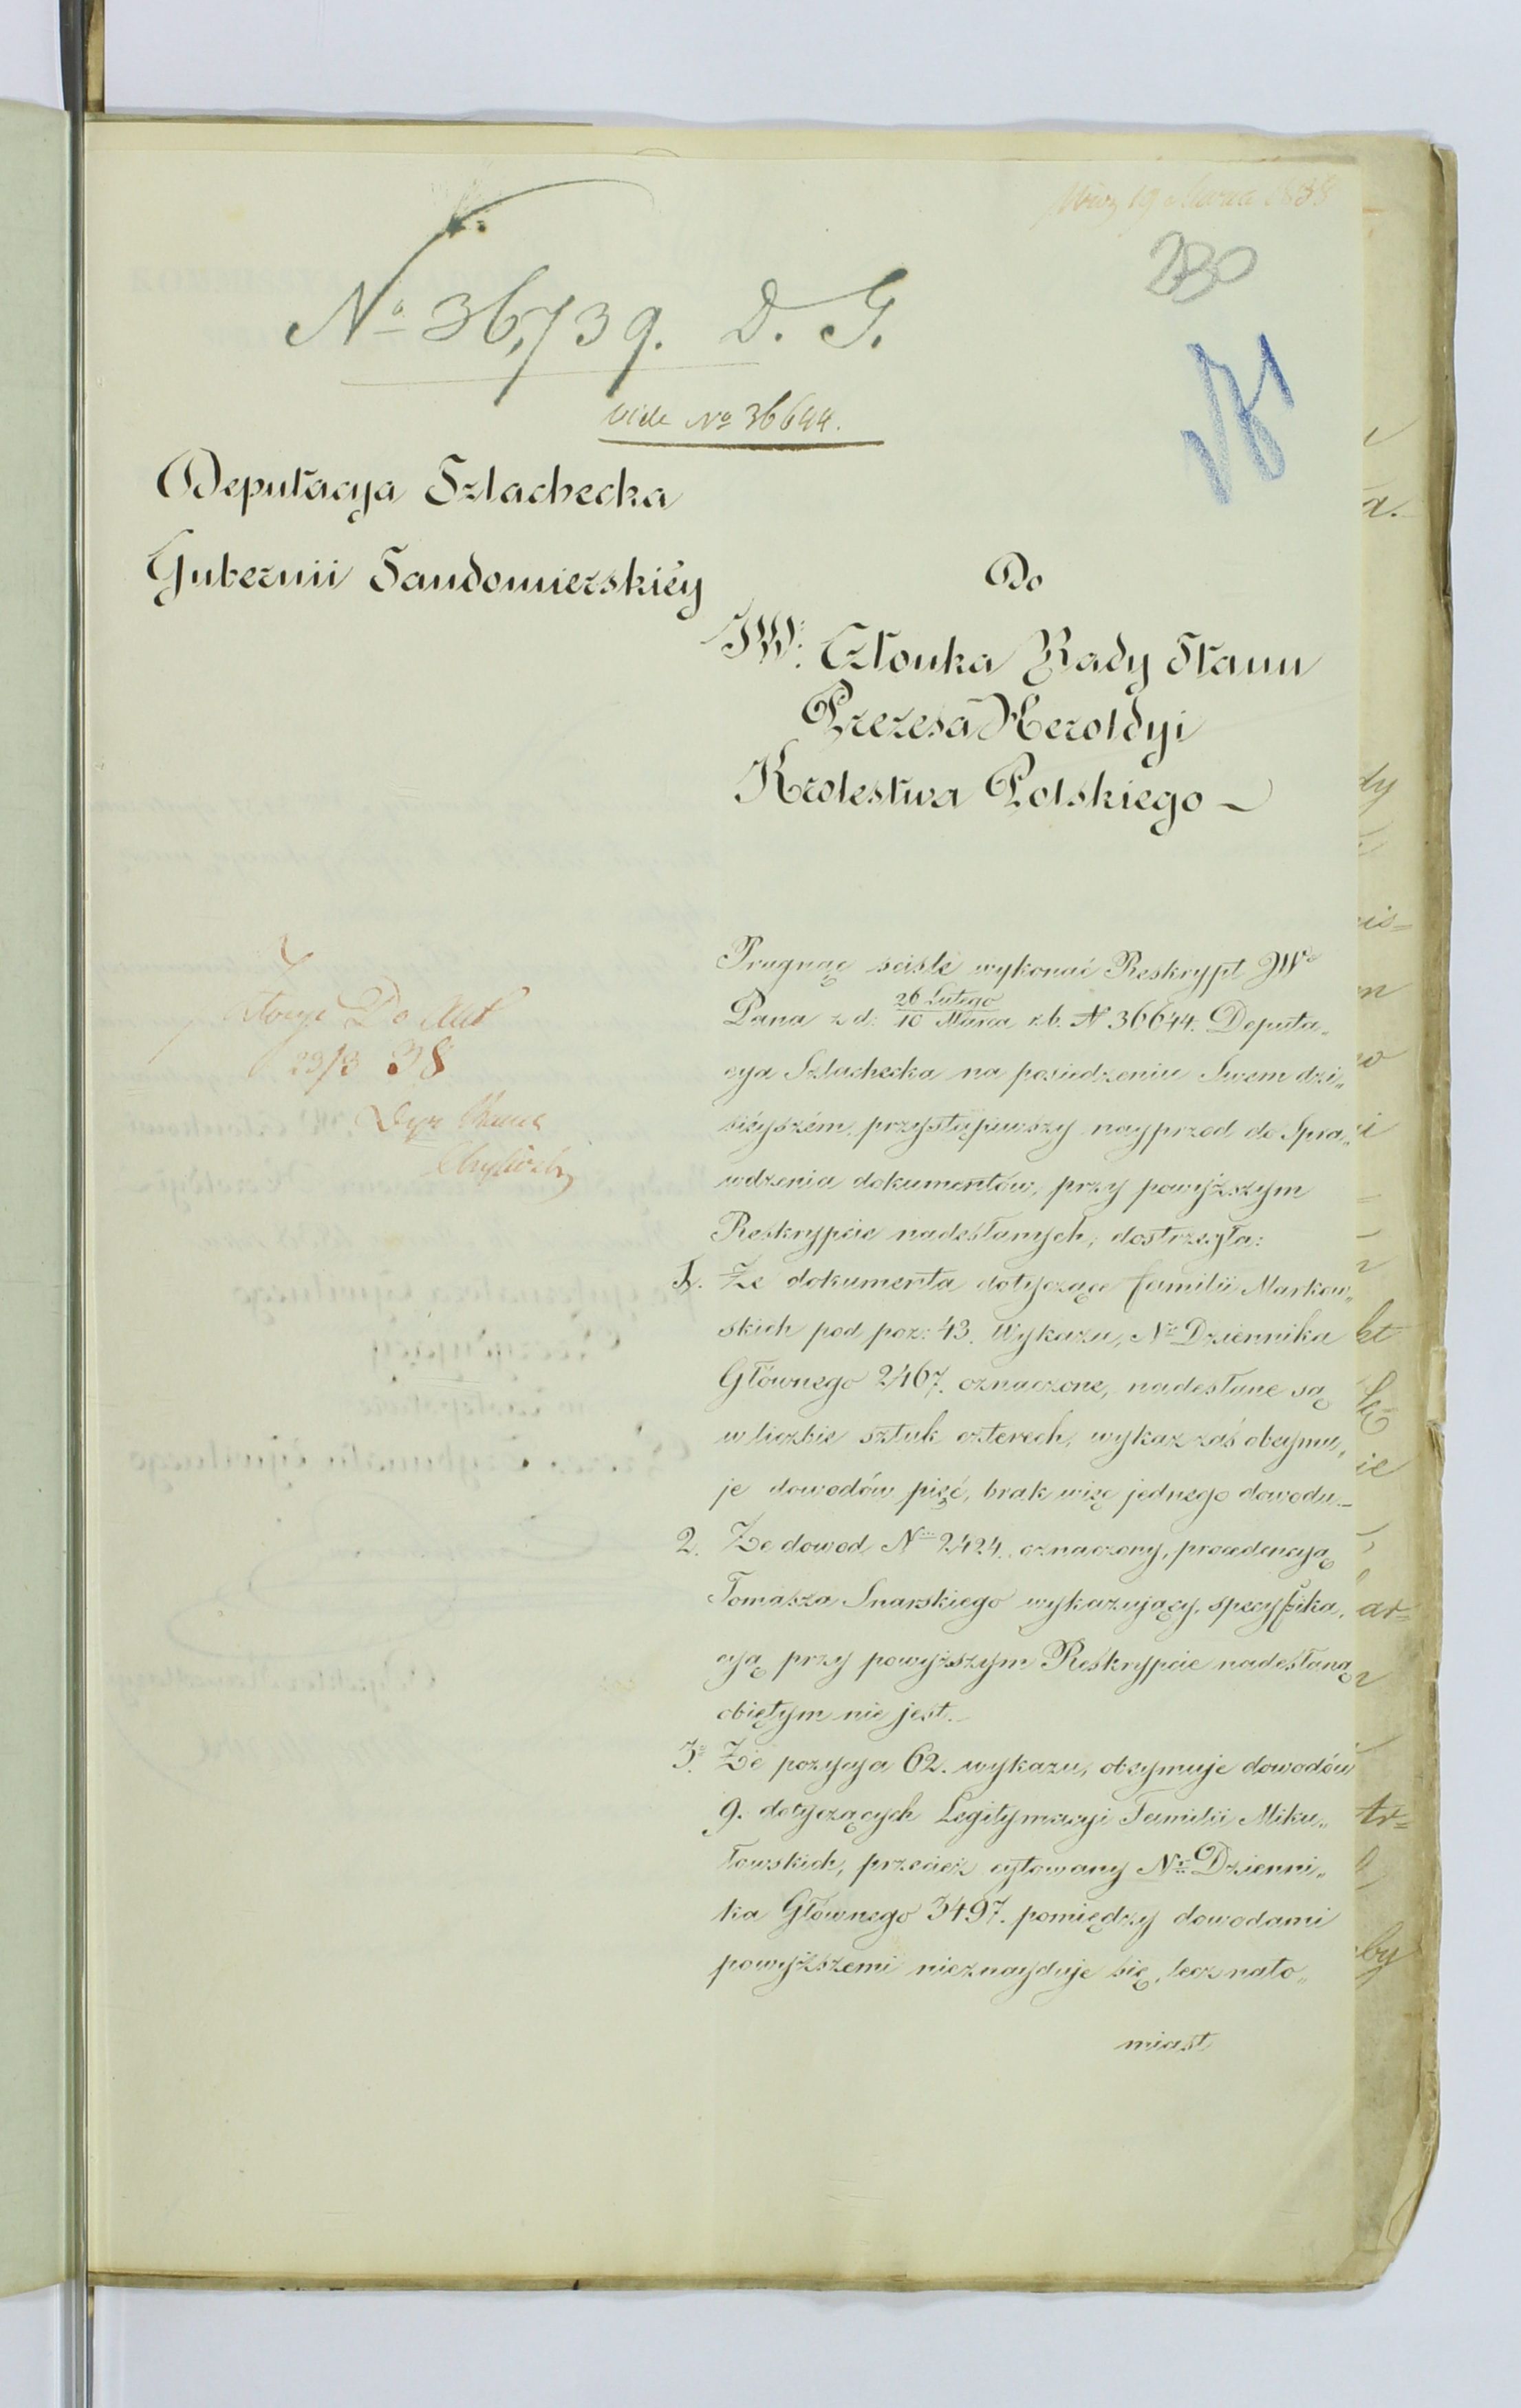 19 Marca 1838
330
No 36,739. D. G.
vide No 36644.
Deputacya Szlachecka
Gubernii Sandomierskiéy
Do
JW: Członka Rady Stanu
Prezesa Heroldyi
Krolestwa Polskiego
Pragnąc sciśle wykonać Reskrypt JWo
Pana z d: 26 Lutego / 10 Marca r.b. N 36644. Deputa„
cya Szlachecka na posiedzeniu Swem dzi„
siéyszém, przystąpiwszy nayprzod do Spra„
wdzenia dokumentów, przy powyższym
Reskrypcie nadesłanych, dostrzegła:
1. Że dokumenta dotyczące familii Markow„
skich pod poz: 43. Wykazu, No Dziennika
Głównego 2467. oznaczone, nadesłane są
w liczbie sztuk czterech, wykaz zaś obeymu„
je dowodów pięć, brak więc jednego dowodu.
2. Że dowod No 2424. oznaczony, procedencyą
Tomasza Snarskiego wykazujący, specyfika„
cyą przy powyższym Reskrypcie nadesłaną
obiętym nie jest.
3. Że pozycya 62. wykazu, obeymuje dowodów
9. dotyczących Legitymacyi Familii Miku„
łowskich, przecież cytowany No Dzienni„
ka Głównego 3497. pomiędzy dowodami
powyższemi nieznayduje się, lecz nato„
miast
Do
23/3 38